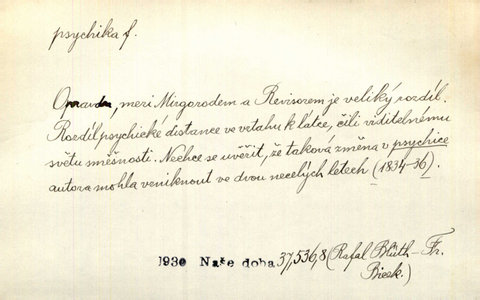 psychika f.
Opravdu, mezi Mirgorodem a Revisorem je veliký rozdíl.
Rozdíl psychické distance ve vztahu k látce, čili viditelnému
světu směšnosti. Nechce se uvěřit, že taková změna v psychice
autora mohla veniknout ve dvou necelých letech (1834-36).
1930 Naše doba 37,536,8 (Rafal Blüth - Fr.
Bieck.)